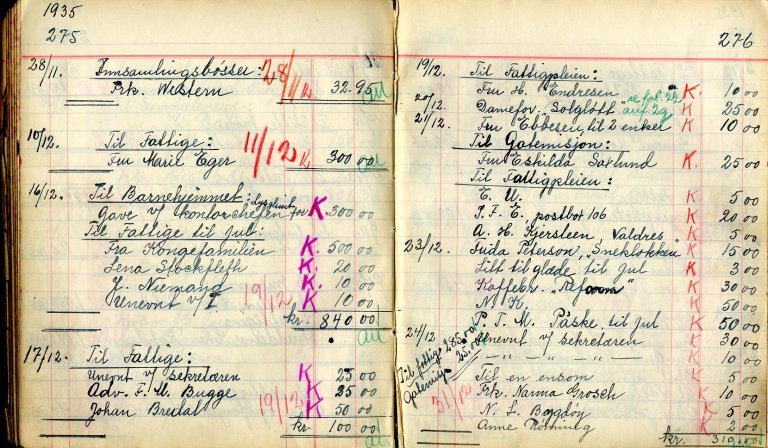 1935
275
28/11. Innsamlingsbösser: 28/11 K
Frk. Western 32.95
10/12. Til Fattige: 11/12 K
Fru Marie Eger 300 00
16/12. Til Barnehjemmet:
Gave v/ kontorchefen for K. 300 00
Til Fattige til jul:
Fra Kongefamilien K. 500 00
Lena Stockfleth K. 20 00
J. Niemand K. 10 00
Unevnt v/ I 19/12 K 10 00
kr. 840 00
17/12. Til Fattige:
Unevnt v/ sekretæren K 25 00
Adv. F. M. Bugge K 25 00
Johan Bredal 19/12 K 50 00
kr. 100 00
276
19/12. Til Fattigpleien:
Fru H. Endresen K. 10 00
20/12. Damefor. "Solglött" K 25 00
se fol. 22 auf 29
21/12. Fru Ebbesen, til 2 enker K 10 00
Til Gatemisjon:
Fru Eskilda Saxlund K. 25 00
Til Fattigpleien:
E. U. K 5 00
P. F. E., postbox 106 K 20 00
A. H. Kjersteen, Valdres K 5 00
23/12. Frida Peterson, "Sneklokken" K 15 00
Litt til glæde til jul K 3 00
Kaffeen "Reform" K 30 00
N. K. K 50 00
24/12 P. T. M. Påske, til jul K 50 00
Unevnt v/ sekretæren K 30 00
— " — " — " — K 10 00
Til fattige 285.00
Gatemisj. 25.00
Til en ensom K 5 00
31/12 Frk. Nanna Grosch K 10 00
N. L. Bogdoy K 5 00
Anne K 2 00
kr. 310 00